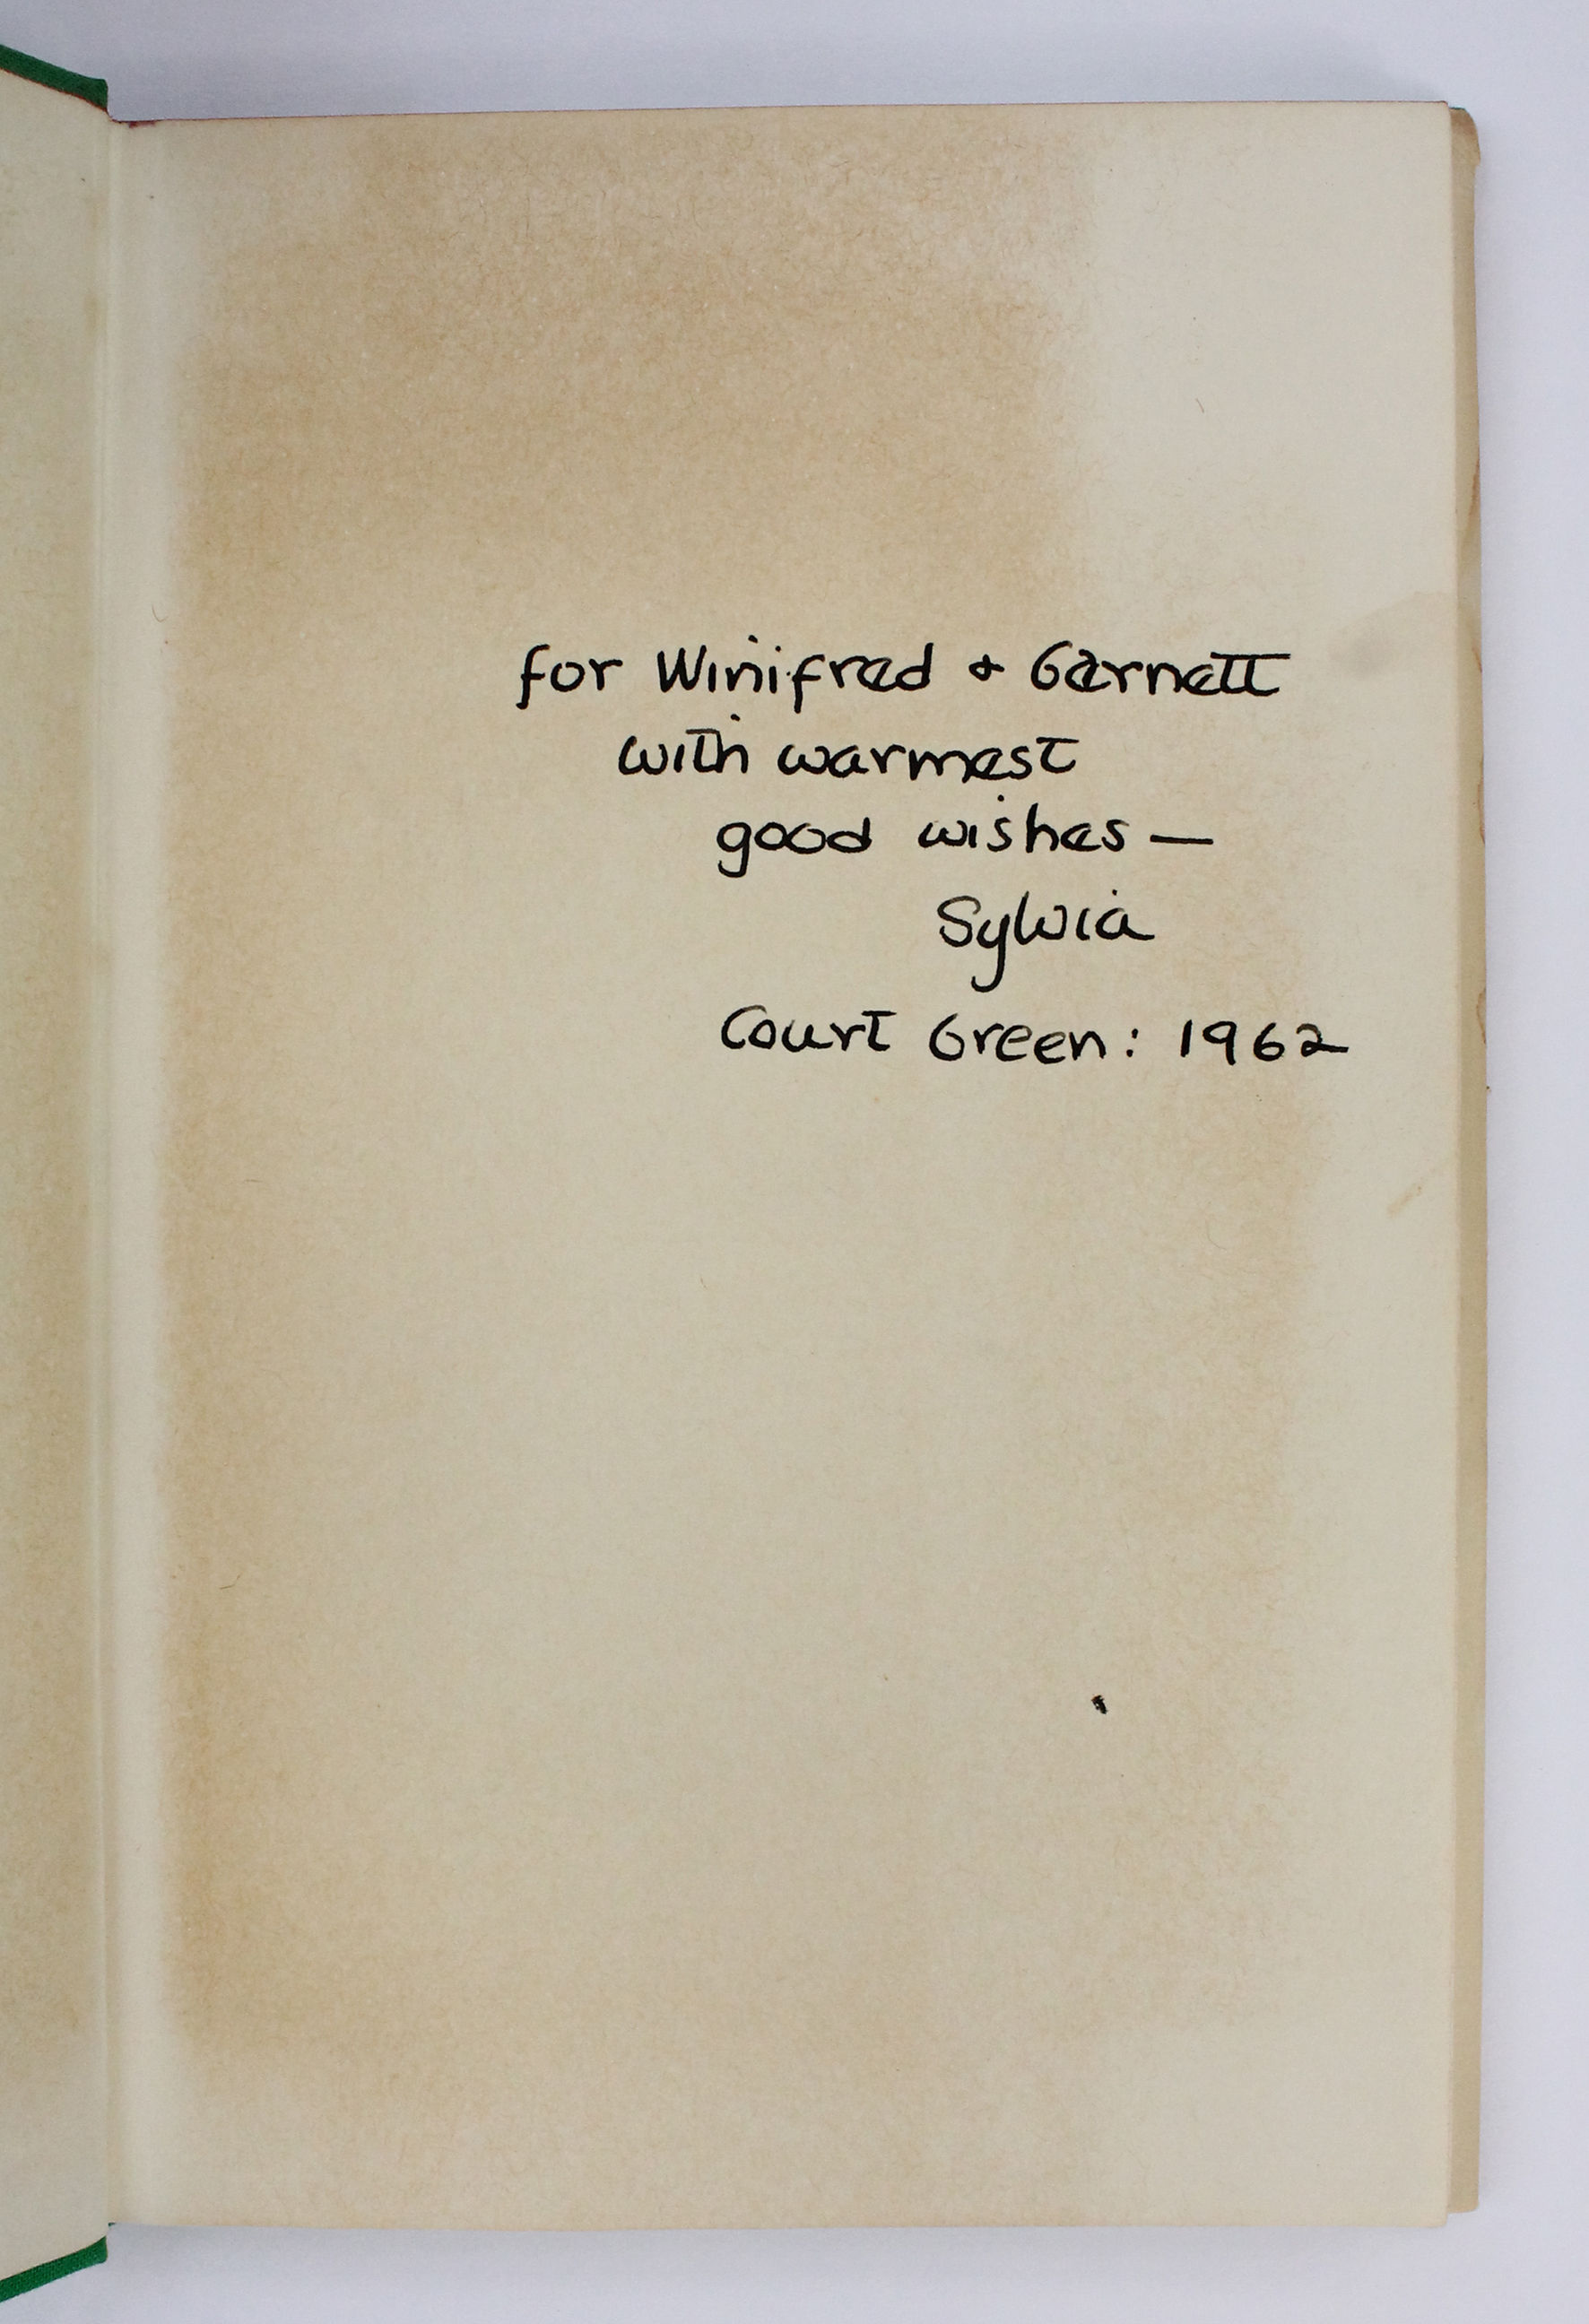 for Winifred & Garnett
with warmest
good wishes —
Sylvia
Court Green: 1962